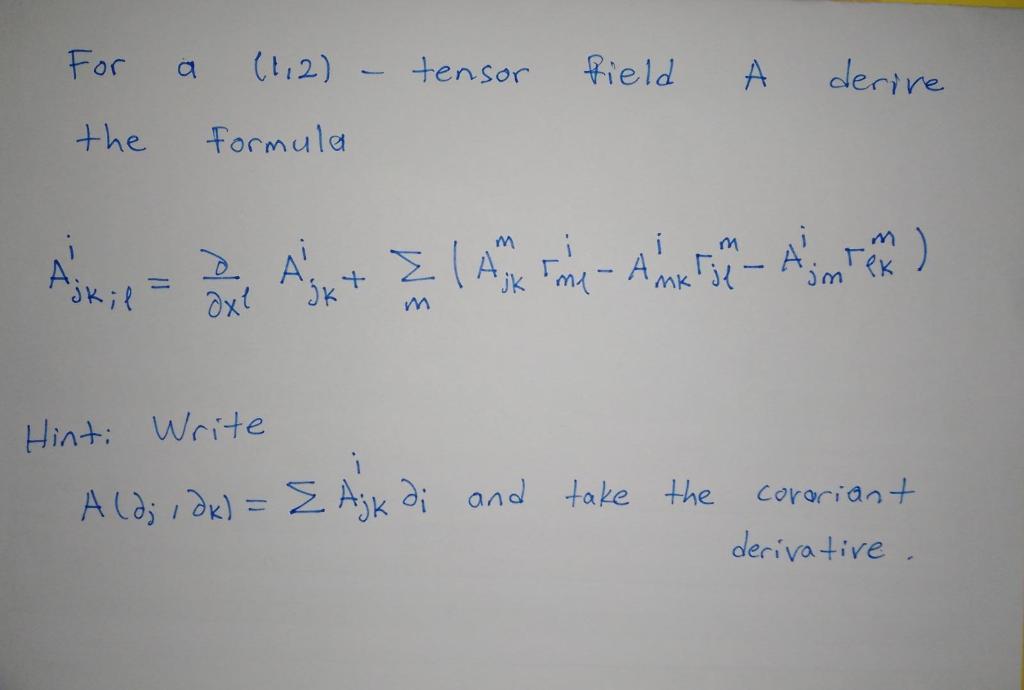 For a (1,2) - tensor field A derive
the formula
A^i_{jk;l} = ∂/∂x^l A^i_{jk} + Σ_m ( A^m_{jk} Γ^i_{ml} - A^i_{mk} Γ^m_{jl} - A^i_{jm} Γ^m_{lk} )
Hint: Write
A(∂_j, ∂_k) = Σ A^i_{jk} ∂_i and take the covariant
derivative.